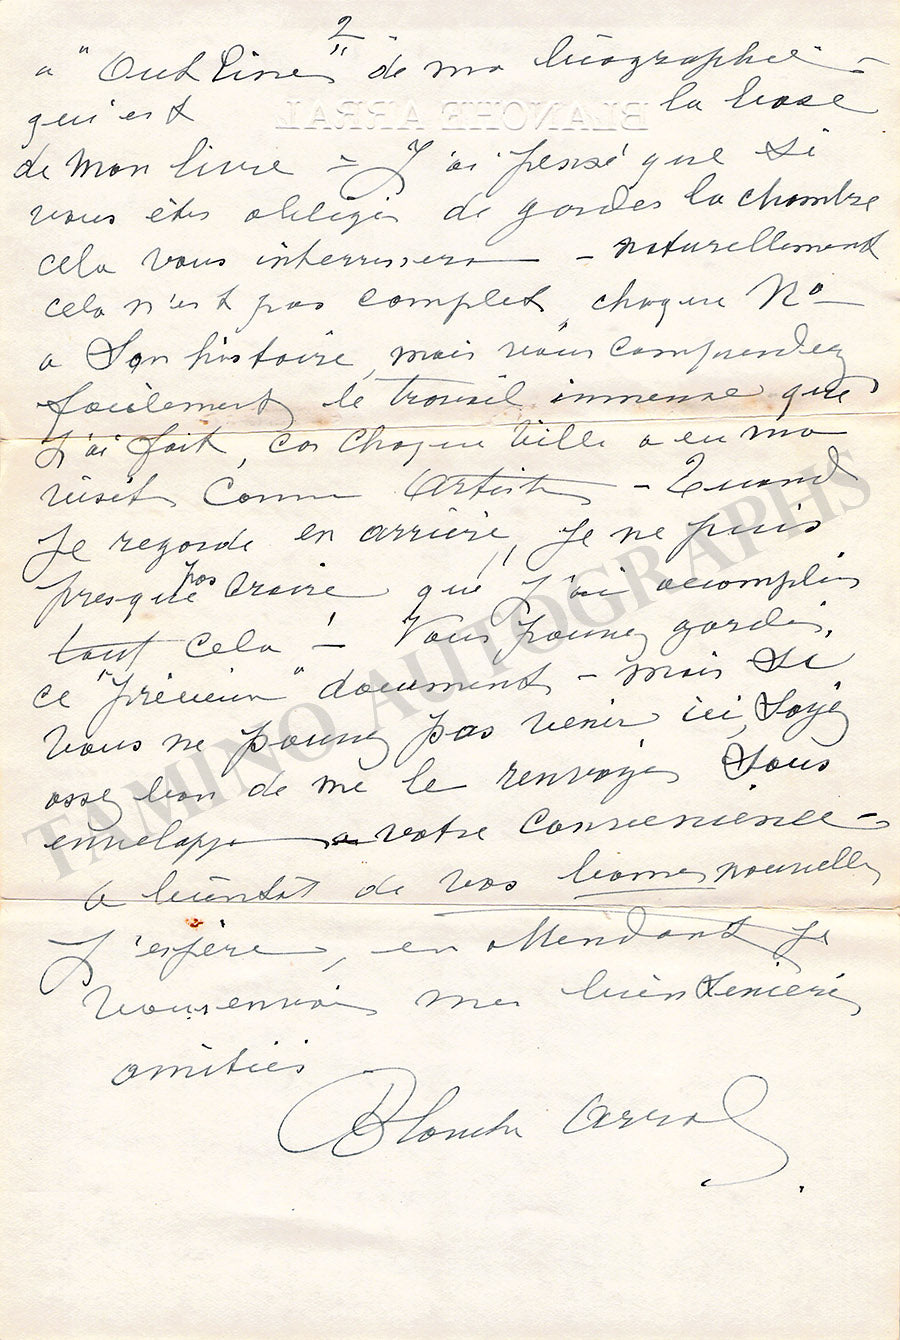 2
a "Out Line" de ma biographie -
qui est la base
BLANCHE ARRAL
de mon livre - J'ai pensé que si
vous êtes obligés de garder la chambre
cela vous interressera - naturellement
cela n'est pas complet, chaque No
a son histoire, mais vous comprendez
facilement le travail immense que
j'ai fait, car chaque ville a eu ma
visit comme Artist - Quand
je regarde en arrière, je ne puis
presque pas croire que j'ai accompli
tout cela ! Vous pouvez garder
ce "précieux" document - mais si
vous ne pouvez pas venir ici, soyez
assez bon de me le renvoyer sous
enveloppe a votre convenience -
a bientôt de vos bonnes nouvelles
J'espère, en attendant je
vous envoi mes bien sincères
amitiés
Blanche Arral
TAMINO AUTOGRAPHS